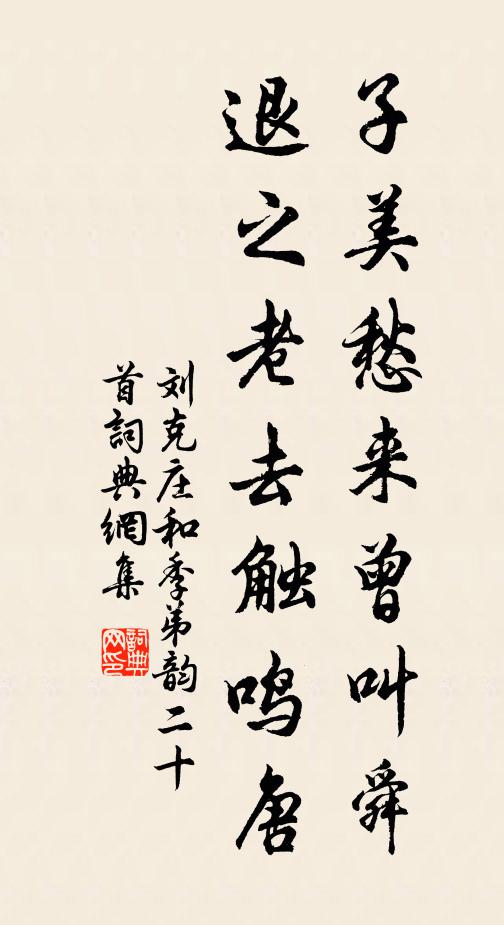 子美愁来曾叫舜
退之老去触鸣唐
刘克庄和季弟韵二十
首詞典網集
詞典网印